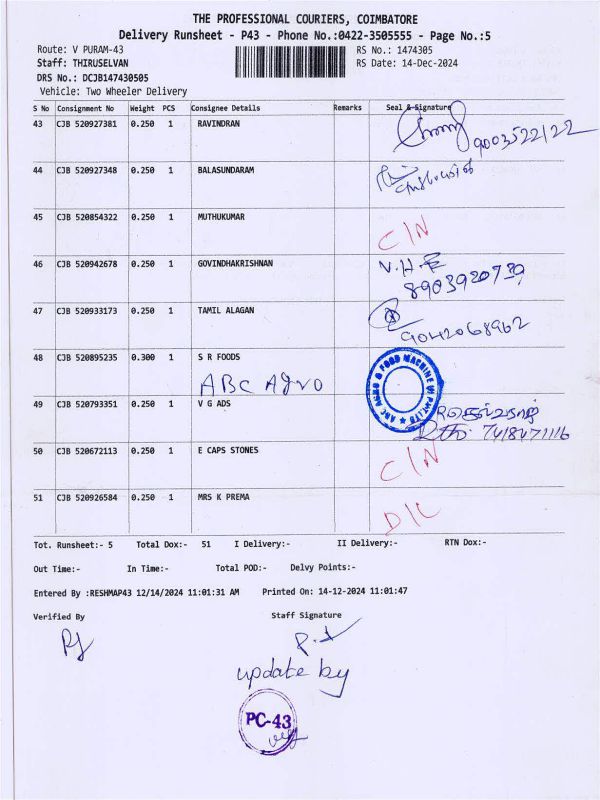 THE PROFESSIONAL COURIERS, COIMBATORE
Delivery Runsheet - P43 - Phone No.:0422-3505555 - Page No.:5
Route: V PURAM-43 RS No.: 1474305
Staff: THIRUSELVAN RS Date: 14-Dec-2024
DRS No.: DCJB147430505
Vehicle: Two Wheeler Delivery
S No Consignment No Weight PCS Consignee Details Remarks Seal & Signature
43 CJB 520927381 0.250 1 RAVINDRAN
9003522122
44 CJB 520927348 0.250 1 BALASUNDARAM
45 CJB 520854322 0.250 1 MUTHUKUMAR
C/N
46 CJB 520942678 0.250 1 GOVINDHAKRISHNAN V.H.E
8903920739
47 CJB 520933173 0.250 1 TAMIL ALAGAN
9042068962
48 CJB 520895235 0.300 1 S R FOODS
ABC Agro
ABC AGRO & FOOD MACHINE (I) PVT LTD
49 CJB 520793351 0.250 1 V G ADS
7418471116
50 CJB 520672113 0.250 1 E CAPS STONES
C/N
51 CJB 520926584 0.250 1 MRS K PREMA
D/L
Tot. Runsheet:- 5 Total Dox:- 51 I Delivery:- II Delivery:- RTN Dox:-
Out Time:- In Time:- Total POD:- Delvy Points:-
Entered By :RESHMAP43 12/14/2024 11:01:31 AM Printed On: 14-12-2024 11:01:47
Verified By Staff Signature
update by
PC-43